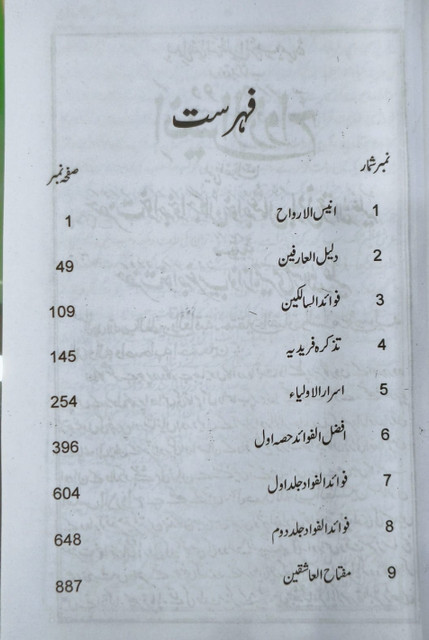 فہرست
نمبر شمار صفحہ نمبر
1 انیس الارواح 1
2 دلیل العارفین 49
3 فوائد السالکین 109
4 تذکرہ فریدیہ 145
5 اسرار الاولیاء 254
6 افضل الفوائد حصہ اول 396
7 فوائد الفواد جلد اول 604
8 فوائد الفواد جلد دوم 648
9 مفتاح العاشقین 887